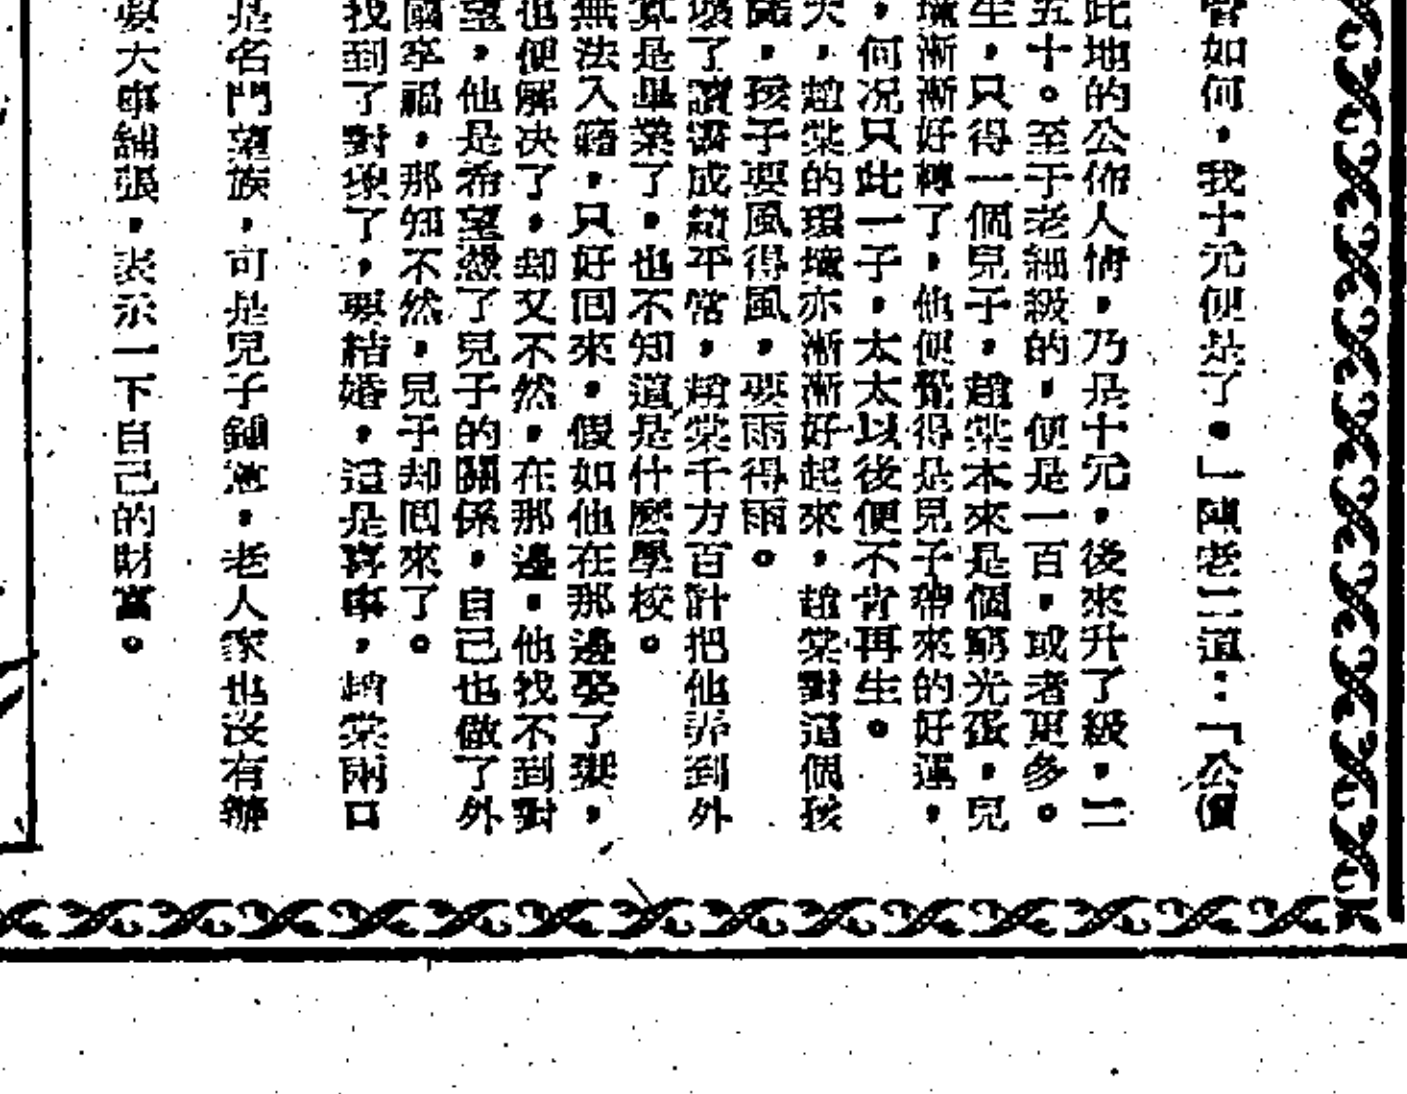 管如何，我十元便是了。」陳老二道：「公價
此地的公佈人情，乃是十元，後來升了級，二
五十。至于老細級的，便是一百，或者更多。
生，只得一個兒子，趙棠本來是個窮光蛋，兒
境漸漸好轉了，他便覺得是兒子帶來的好運，
，何况只此一子，太太以後便不肯再生。
天，趙棠的環境亦漸漸好起來，趙棠對這個孩
，孩子要風得風，要雨得雨。
壞了讀書成績平常，趙棠千方百計把他弄到外
算是畢業了，也不知道是什麼學校。
無法入籍，只好回來，假如他在那邊娶了妻，
也便解决了，却又不然，在那邊，他找不到對
望，他是希望想了兒子的關係，自己也做了外
國享福，那知不然，兒子却回來了。
找到了對象了，要結婚，這是喜事，趙棠兩口
是名門望族，可是兒子鍾意，老人家也沒有辦
要大事鋪張，表示一下自己的財富。